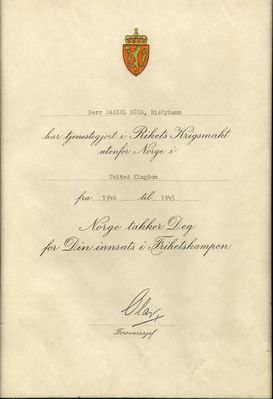 Herr DANIEL SÖIS, Risöyhamn
har tjenestegjort i Rikets Krigsmakt
utenfor Norge i
United Kingdom
fra 1940 til 1945
Norge takker Deg
for Din innsats i Frihetskampen
Olav
Forsvarssjef